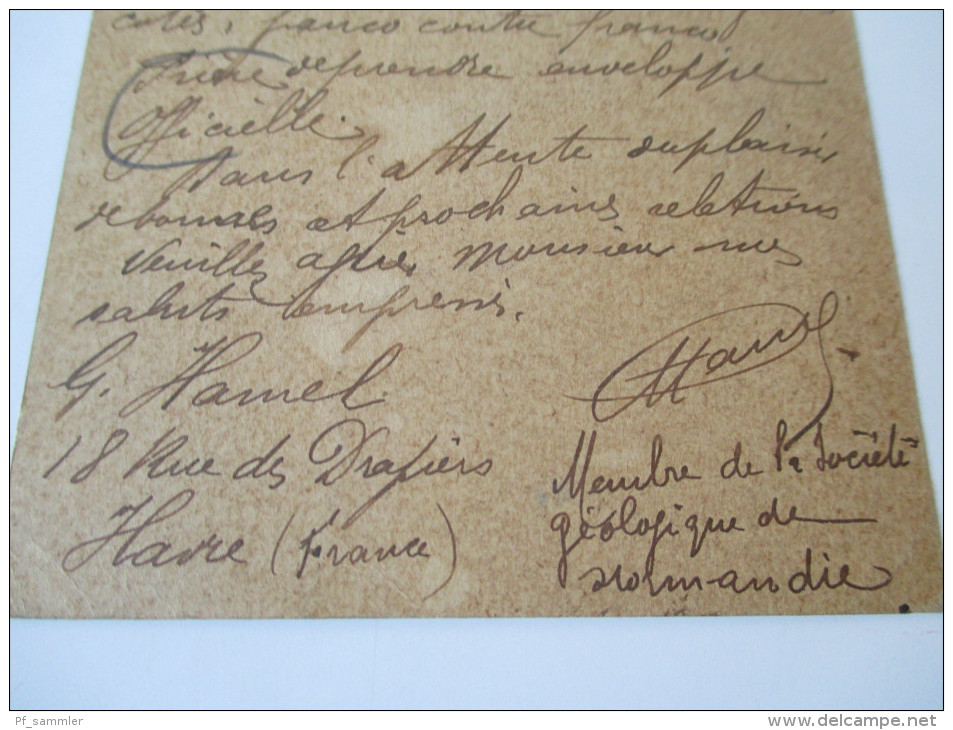 cotés, franco contre franco
Prière de prendre enveloppe
Officielle.
Dans l'attente du plaisir
de bonnes et prochaines relations
Veuillez agréer Monsieur mes
saluts empressés.
G. Hamel
18 Rue des Drapiers
Havre (France)
Hamel
Membre de la Société
géologique de
Normandie
Pf_sammler
www.delcampe.net